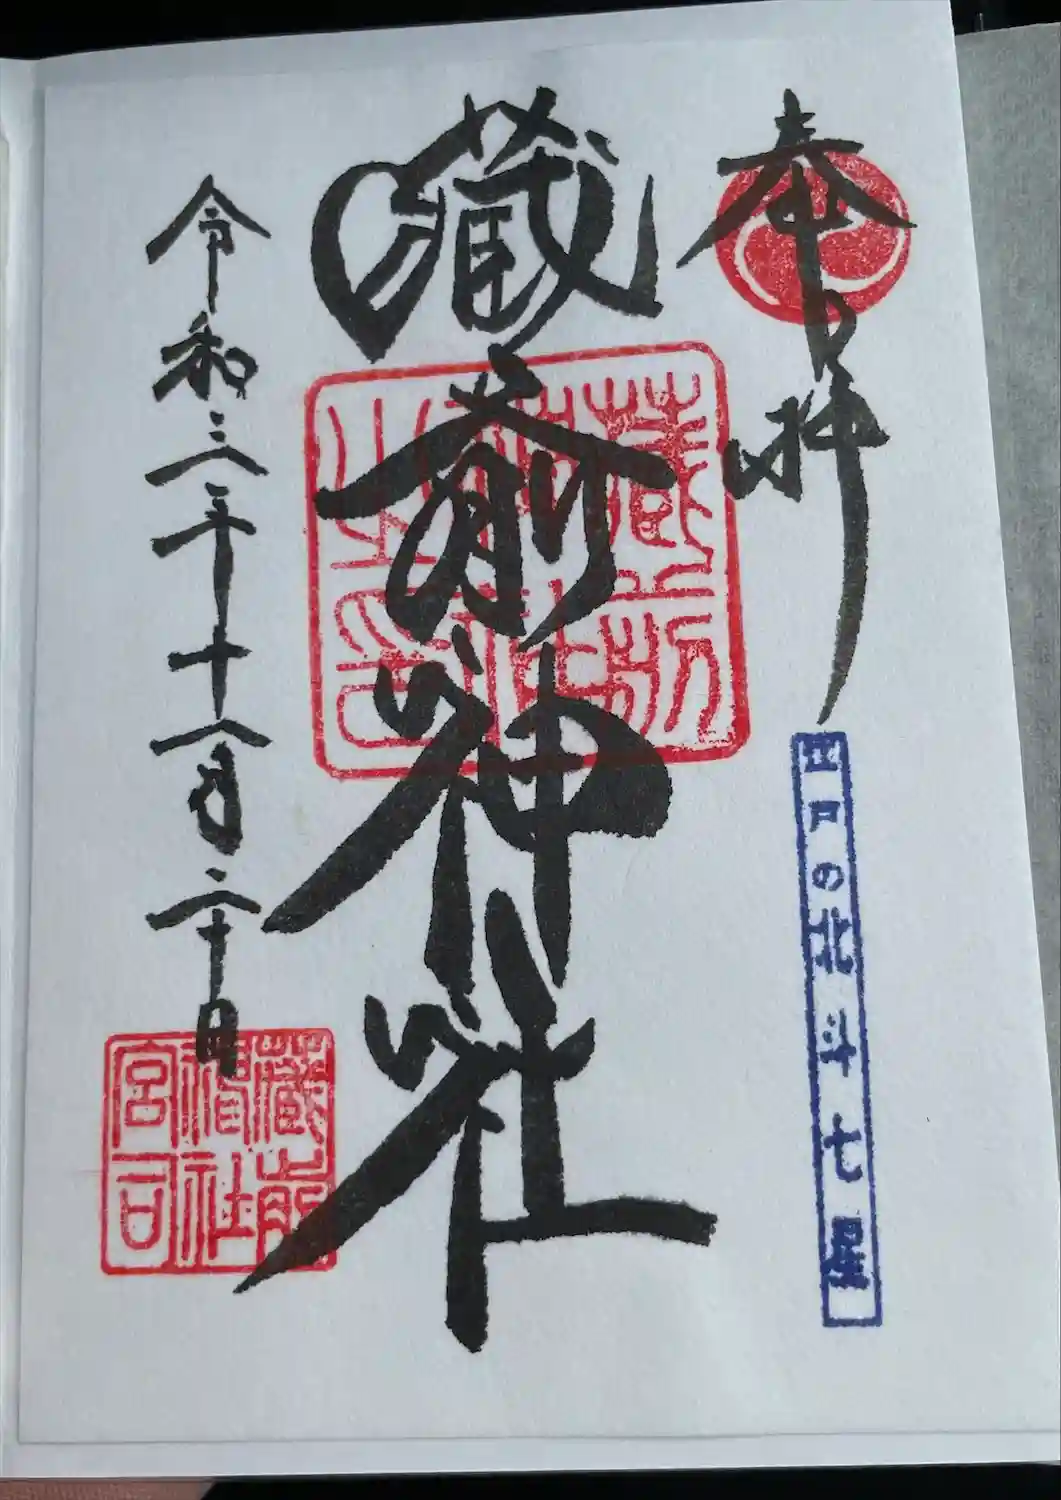 奉拝
江戸の北斗七星
蔵前神社
令和三年十一月二十日
蔵前神社之印
蔵前神社宮司